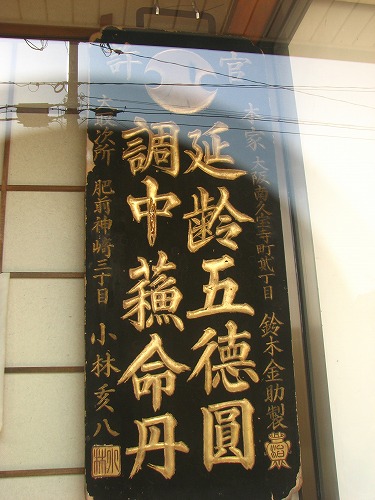 官許
本家 大阪南久宝寺町貮丁目 鈴木金助製
延齢五徳圓
調中蘓命丹
大取次所 肥前神崎三丁目 小林亥八